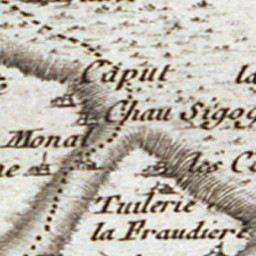 Caput
la
Chau Sigog
Monat
ne
les C
Tuilerie
la Fraudiere